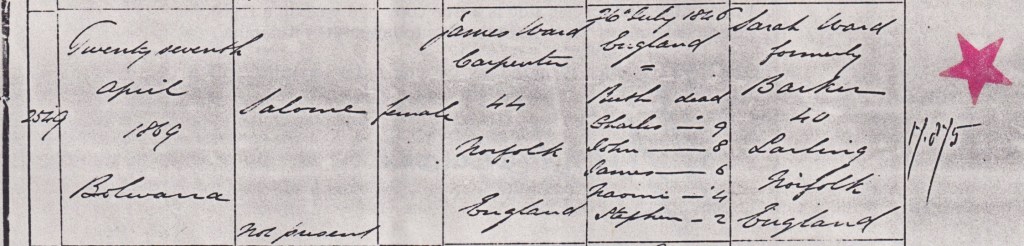 2549
Twenty seventh
April
1869
Bolwarra
Salome
not present
female
James Ward
Carpenter
44
Norfolk
England
July 1846
England
"
Ruth dead
Charles — 9
John — 8
James — 6
Naomi — 4
Stephen — 2
Sarah Ward
formerly
Barker
40
Larling
Norfolk
England